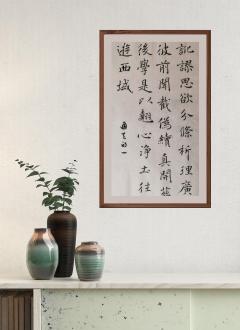 訛謬思欲分條析理廣
彼前聞截偽續真開茲
後學是以翹心淨土往
遊西域